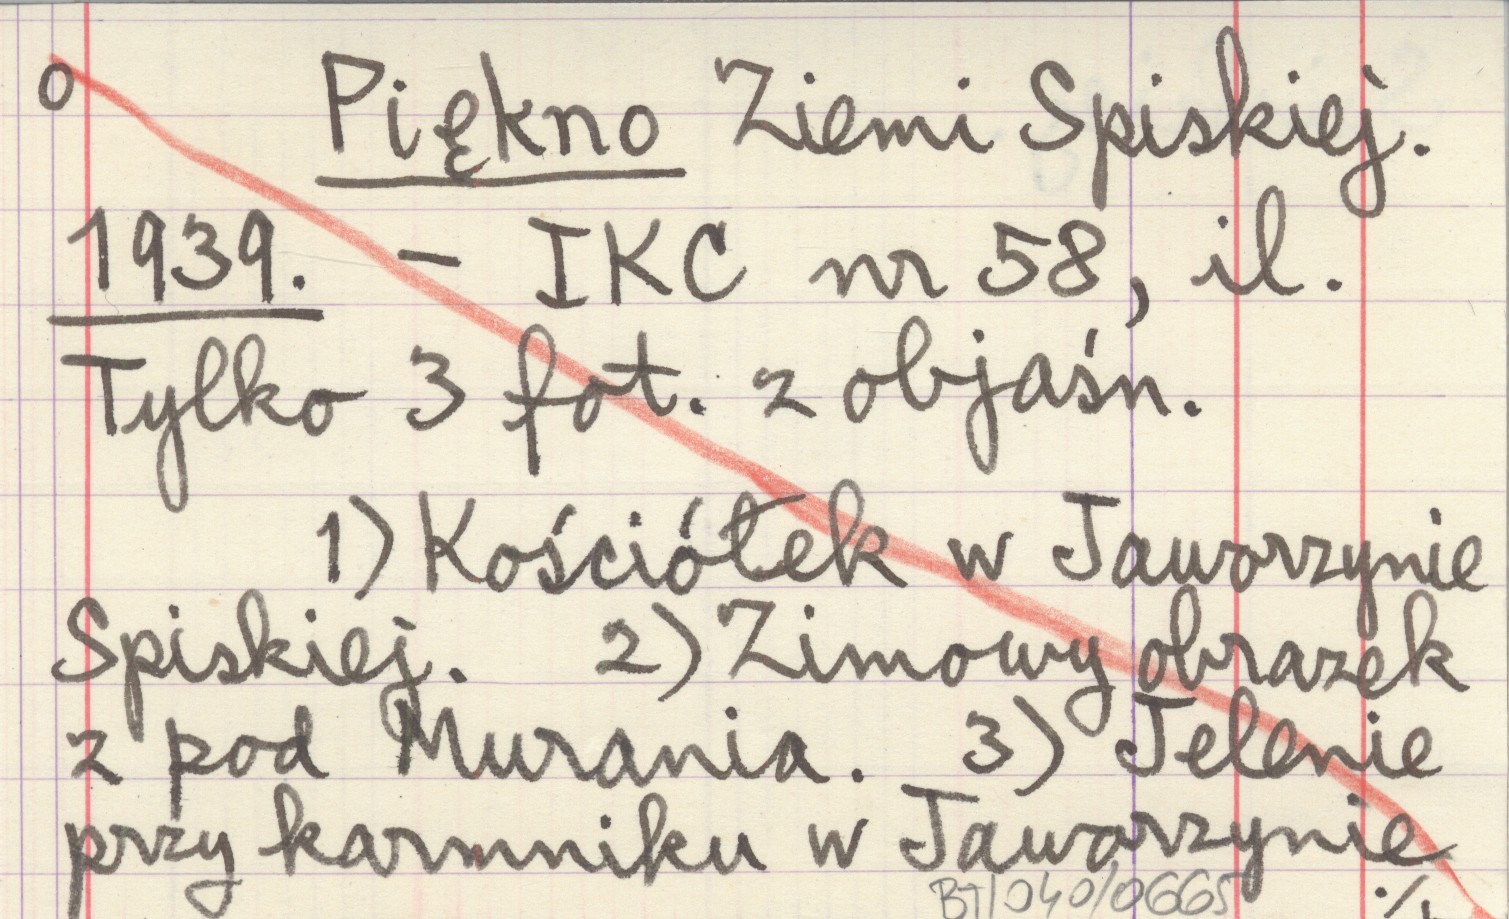 o Piękno Ziemi Spiskiej.
1939. – IKC nr 58, il.
Tylko 3 fot. z objaśn.
1) Kościółek w Jaworzynie
Spiskiej. 2) Zimowy obrazek
z pod Murania. 3) Jelenie
przy karmniku w Jaworzynie
BT/040/0665 ./.